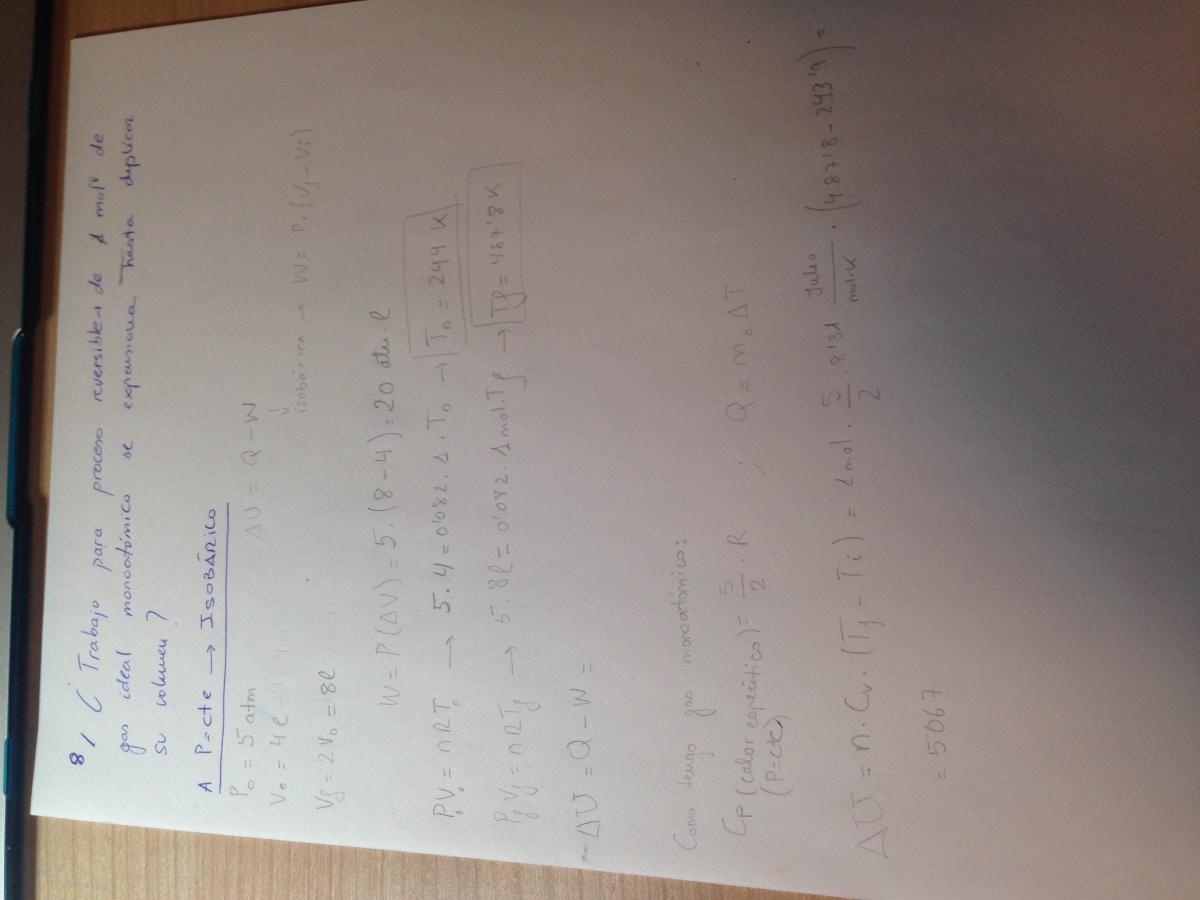 8/ ¿ Trabajo para proceso reversible → de 1 mol de
gas ideal monoatómico se expansiona hasta duplicar
su volumen?
A P=cte → ISOBÁRICO
P₀ = 5 atm
ΔU = Q - W
V₀ = 4l
isobárica → W = P.(Vf - Vi)
Vf = 2V₀ = 8l
W = P(ΔV) = 5.(8-4) = 20 atm.l
P₀V₀ = nRT₀ → 5.4 = 0'082.1.T₀ → T₀ = 244 K
PfVf = nRTf → 5.8l = 0'082.1mol.Tf → Tf = 487'8 K
- ΔU = Q - W =
Como tengo gas monoatómico:
CP (calor específico) = 5/2 . R ; Q = m.ΔT
(P=cte)
ΔU = n.Cv.(Tf - Ti) = 1mol. 5/2 . 8'31 Julio/mol.K . (487'8 - 243'9) =
= 5067